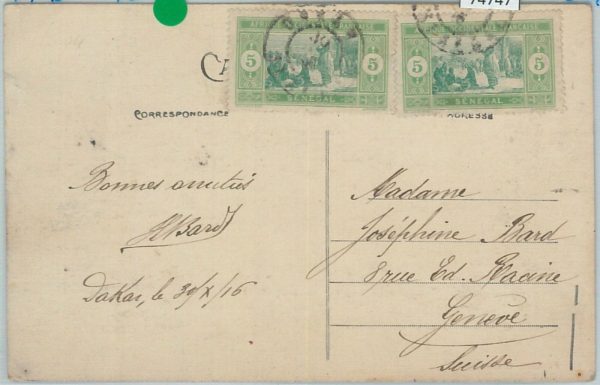 74747
AFRIQUE OCCIDENTALE FRANÇAISE
5 5
SENEGAL
AFRIQUE OCCIDENTALE FRANÇAISE
5 5
SENEGAL
DAKAR
CORRESPONDANCE
ADRESSE
Bonnes amitiés
Bard
Dakar, le 30/X/16
Madame
Joséphine Bard
8 rue Ed. Racine
Genève
Suisse